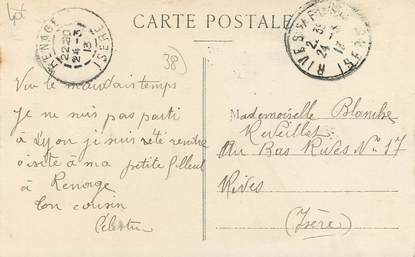 CARTE POSTALE
RENAGE
ISERE
22-30
24-3
13
RIVES
ISERE
24
13
38
Vu le mauvais temps
je ne suis pas parti
à Lyon je suis été rendre
visite à ma petite filleul
à Renage
Ton cousin
Célestin
Mademoiselle Blanche
Reveillet
Au Bas Rives No 17
Rives
(Isère)